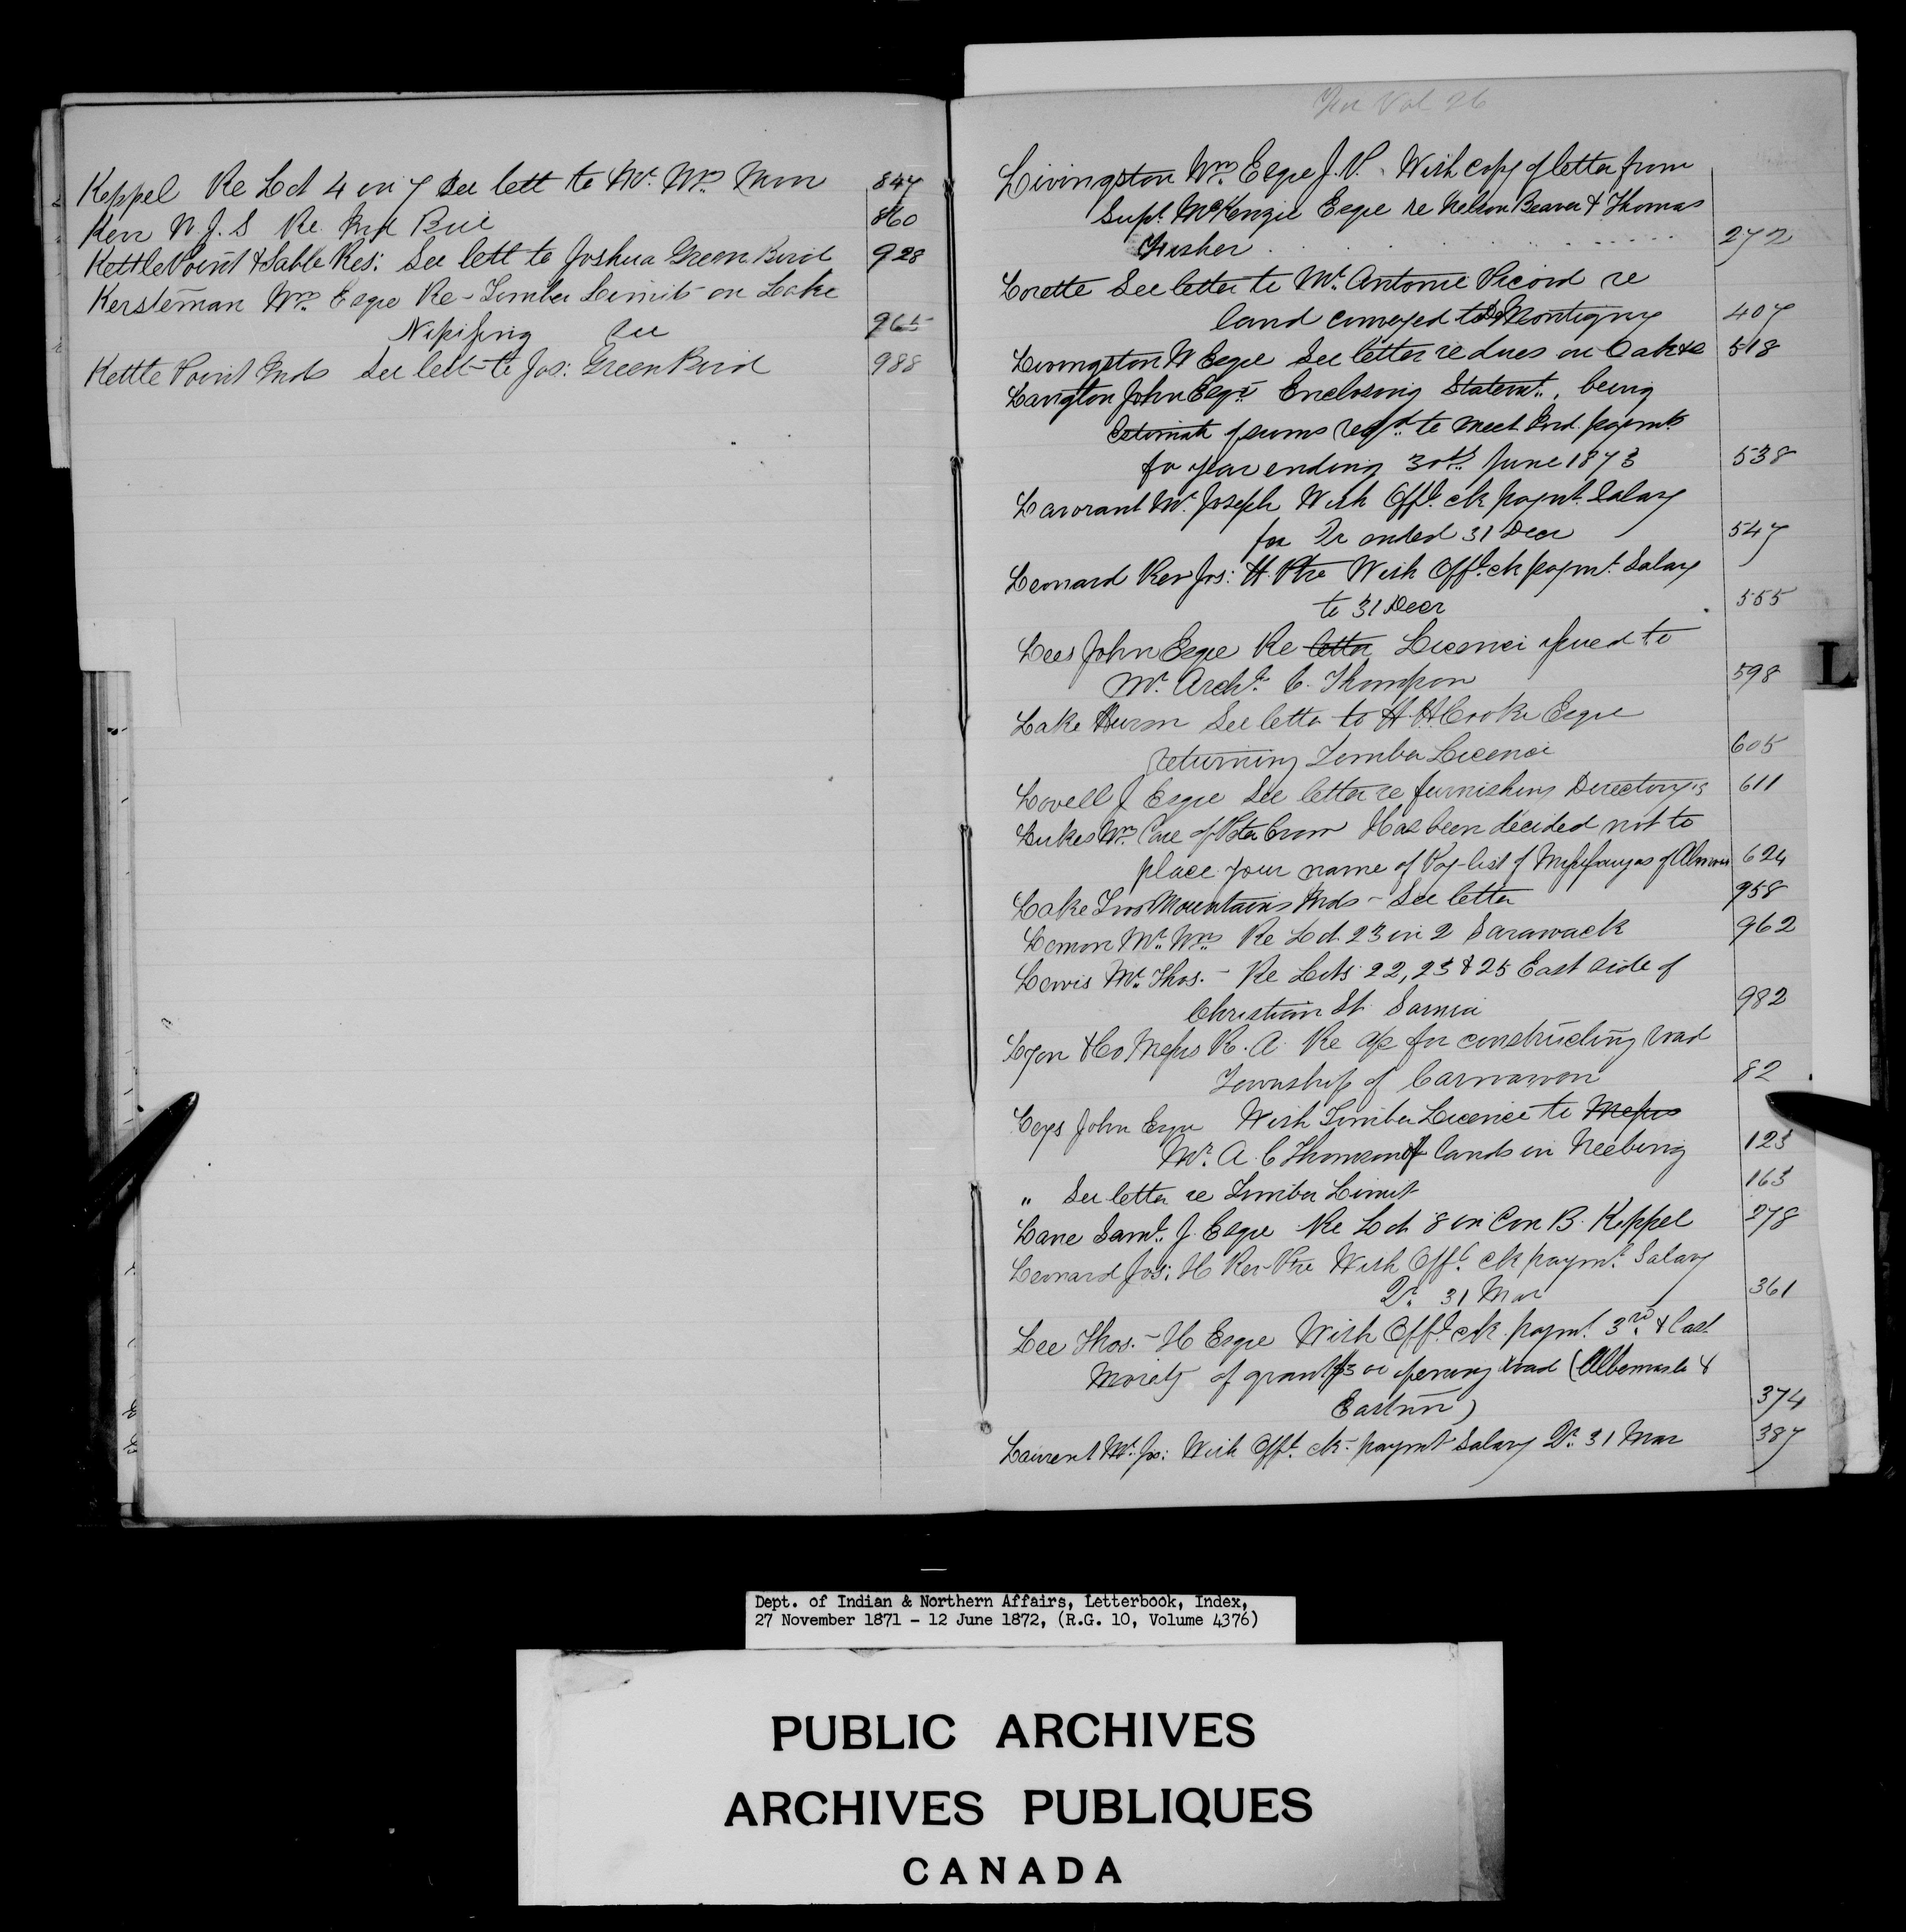 Keppel Re Lot 4 in 7 See lett to Mr. Wm. 847
Kerr W. J. S Re Ind 860
Kettle Point & Sable Res: See lett to Joshua Green Bird 928
Kersteman Wm. Esqre Re-Timber Limits on Lake
Nipissing See 965
Kettle Point Inds See lett to Jos: Green Bird 988
Vol 26
Livingston Wm. Esqre J.P. With copy of letter from
Supt. McKenzie Esqre re Nelson Beaver & Thomas
Fisher 272
Lorette See letter to Mr. Antoine Picard re
land conveyed to De Montigny 407
Livingston W Esqre See letter re dues on Oak &c 518
Langton John Esqr. Enclosing Statemt., being
Estimate of sums reqd. to meet Ind. paymts
for year ending 30th. June 1873 538
Mr. Joseph With Offl. ck paymt. Salary
for Qr ended 31 Decr 547
Leonard Rev Jos: H. Ptre With Offl. ck paymt. Salary
to 31 Decr 555
Lees John Esqre Re letter Licence issued to
Mr. Archd. C. Thompson 598
Lake Huron See letter to H. H. Cooke Esqre
returning Timber Licence 605
Lovell J Esqre See letter re furnishing Directorys 611
Lukes Wm. Care of Peter Crow Has been decided not to
place your name of Pay-list of Mississaugas of Alnwick 624
Lake Two Mountains Inds - See letter 958
Lemon Mr. Wm. Re Lot 23 in 2 Sarawack 962
Lewis Mr. Thos. - Re Lots 22, 23 & 25 East side of
Christian St. Sarnia 982
Lyon & Co Messrs R. A. Re a/c for constructing road
Township of Carnarvon 82
Loys John Esqre With Timber Licence to Messrs
Mr. A. C Thomson of lands in Neebing 123
" See letter re Timber Limit 163
Lane Saml. J. Esqre Re Lot 8 in Con B. Keppel 278
Leonard Jos: H Rev Ptre With Offl. ck paymt. Salary
Qr. 31 Mar 361
Lee Thos. - H Esqre With Offl. ck paymt. 3rd. & last
Moiety of grant opening road (Albemarle &
Eastnor) 374
Laurent Mr. Jos: With Offl. ck. paymt Salary Qr. 31 Mar 387
L
Dept. of Indian & Northern Affairs, Letterbook, Index,
27 November 1871 - 12 June 1872, (R.G. 10, Volume 4376)
PUBLIC ARCHIVES
ARCHIVES PUBLIQUES
CANADA